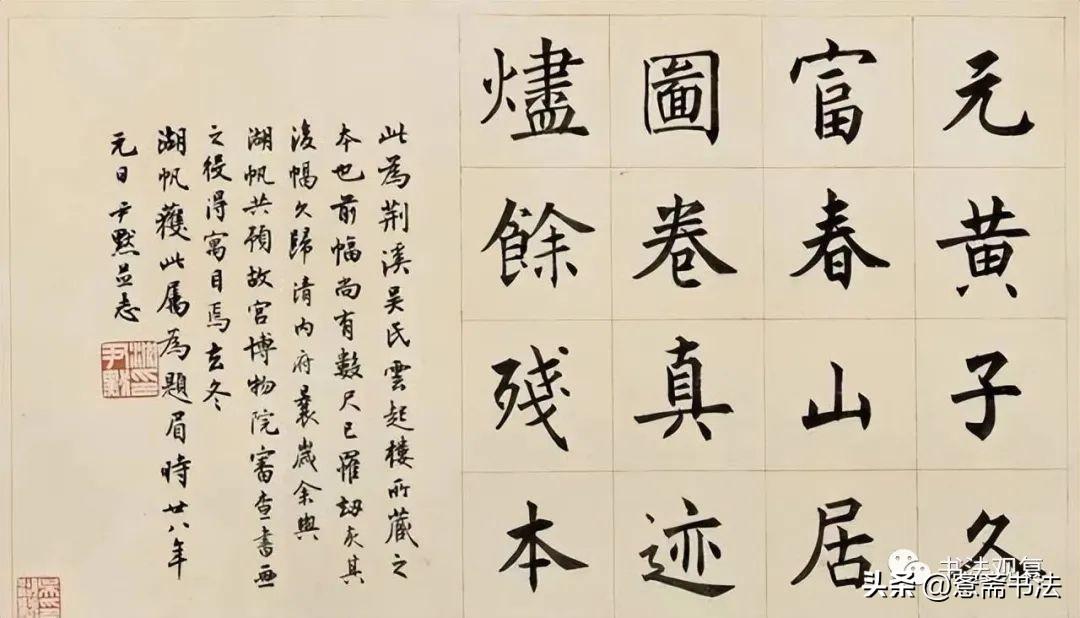 元黄子久
富春山居
圖卷真迹
燼餘殘本
此為荆溪吴氏雲起樓所藏之
本也前幅尚有數尺已罹劫灰其
後幅久歸清内府曩歲余與
湖帆共預故宫博物院審查書画
之役得寓目焉去冬
湖帆獲此属為題眉時廿八年
元日尹默並志
沈尹默印
书法观复
头条@愙斋书法